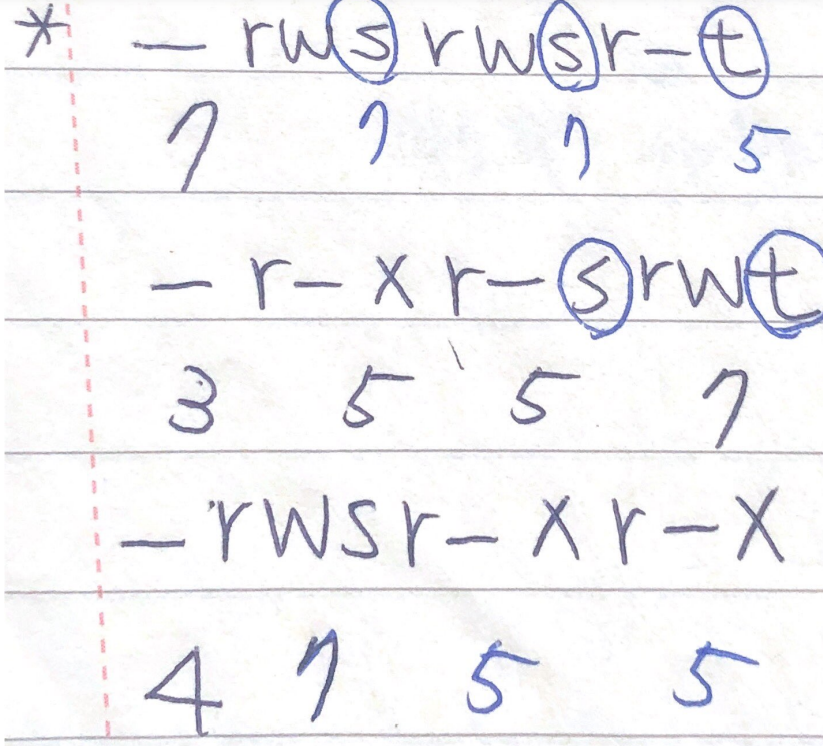 * – rwsrwsr–t
7 7 7 5
– r – x r – srwt
3 5 5 7
– rwsr – x r – x
4 7 5 5